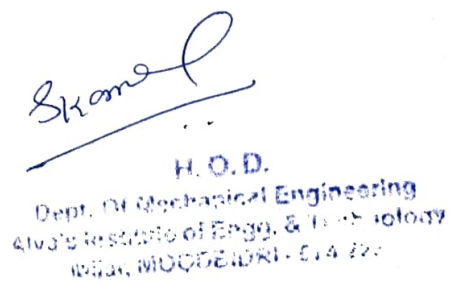 H. O. D.
Dept. Of Mechanical Engineering
Alva's Institute of Engg. & Technology
Mijar, MOODBIDRI - 574 22